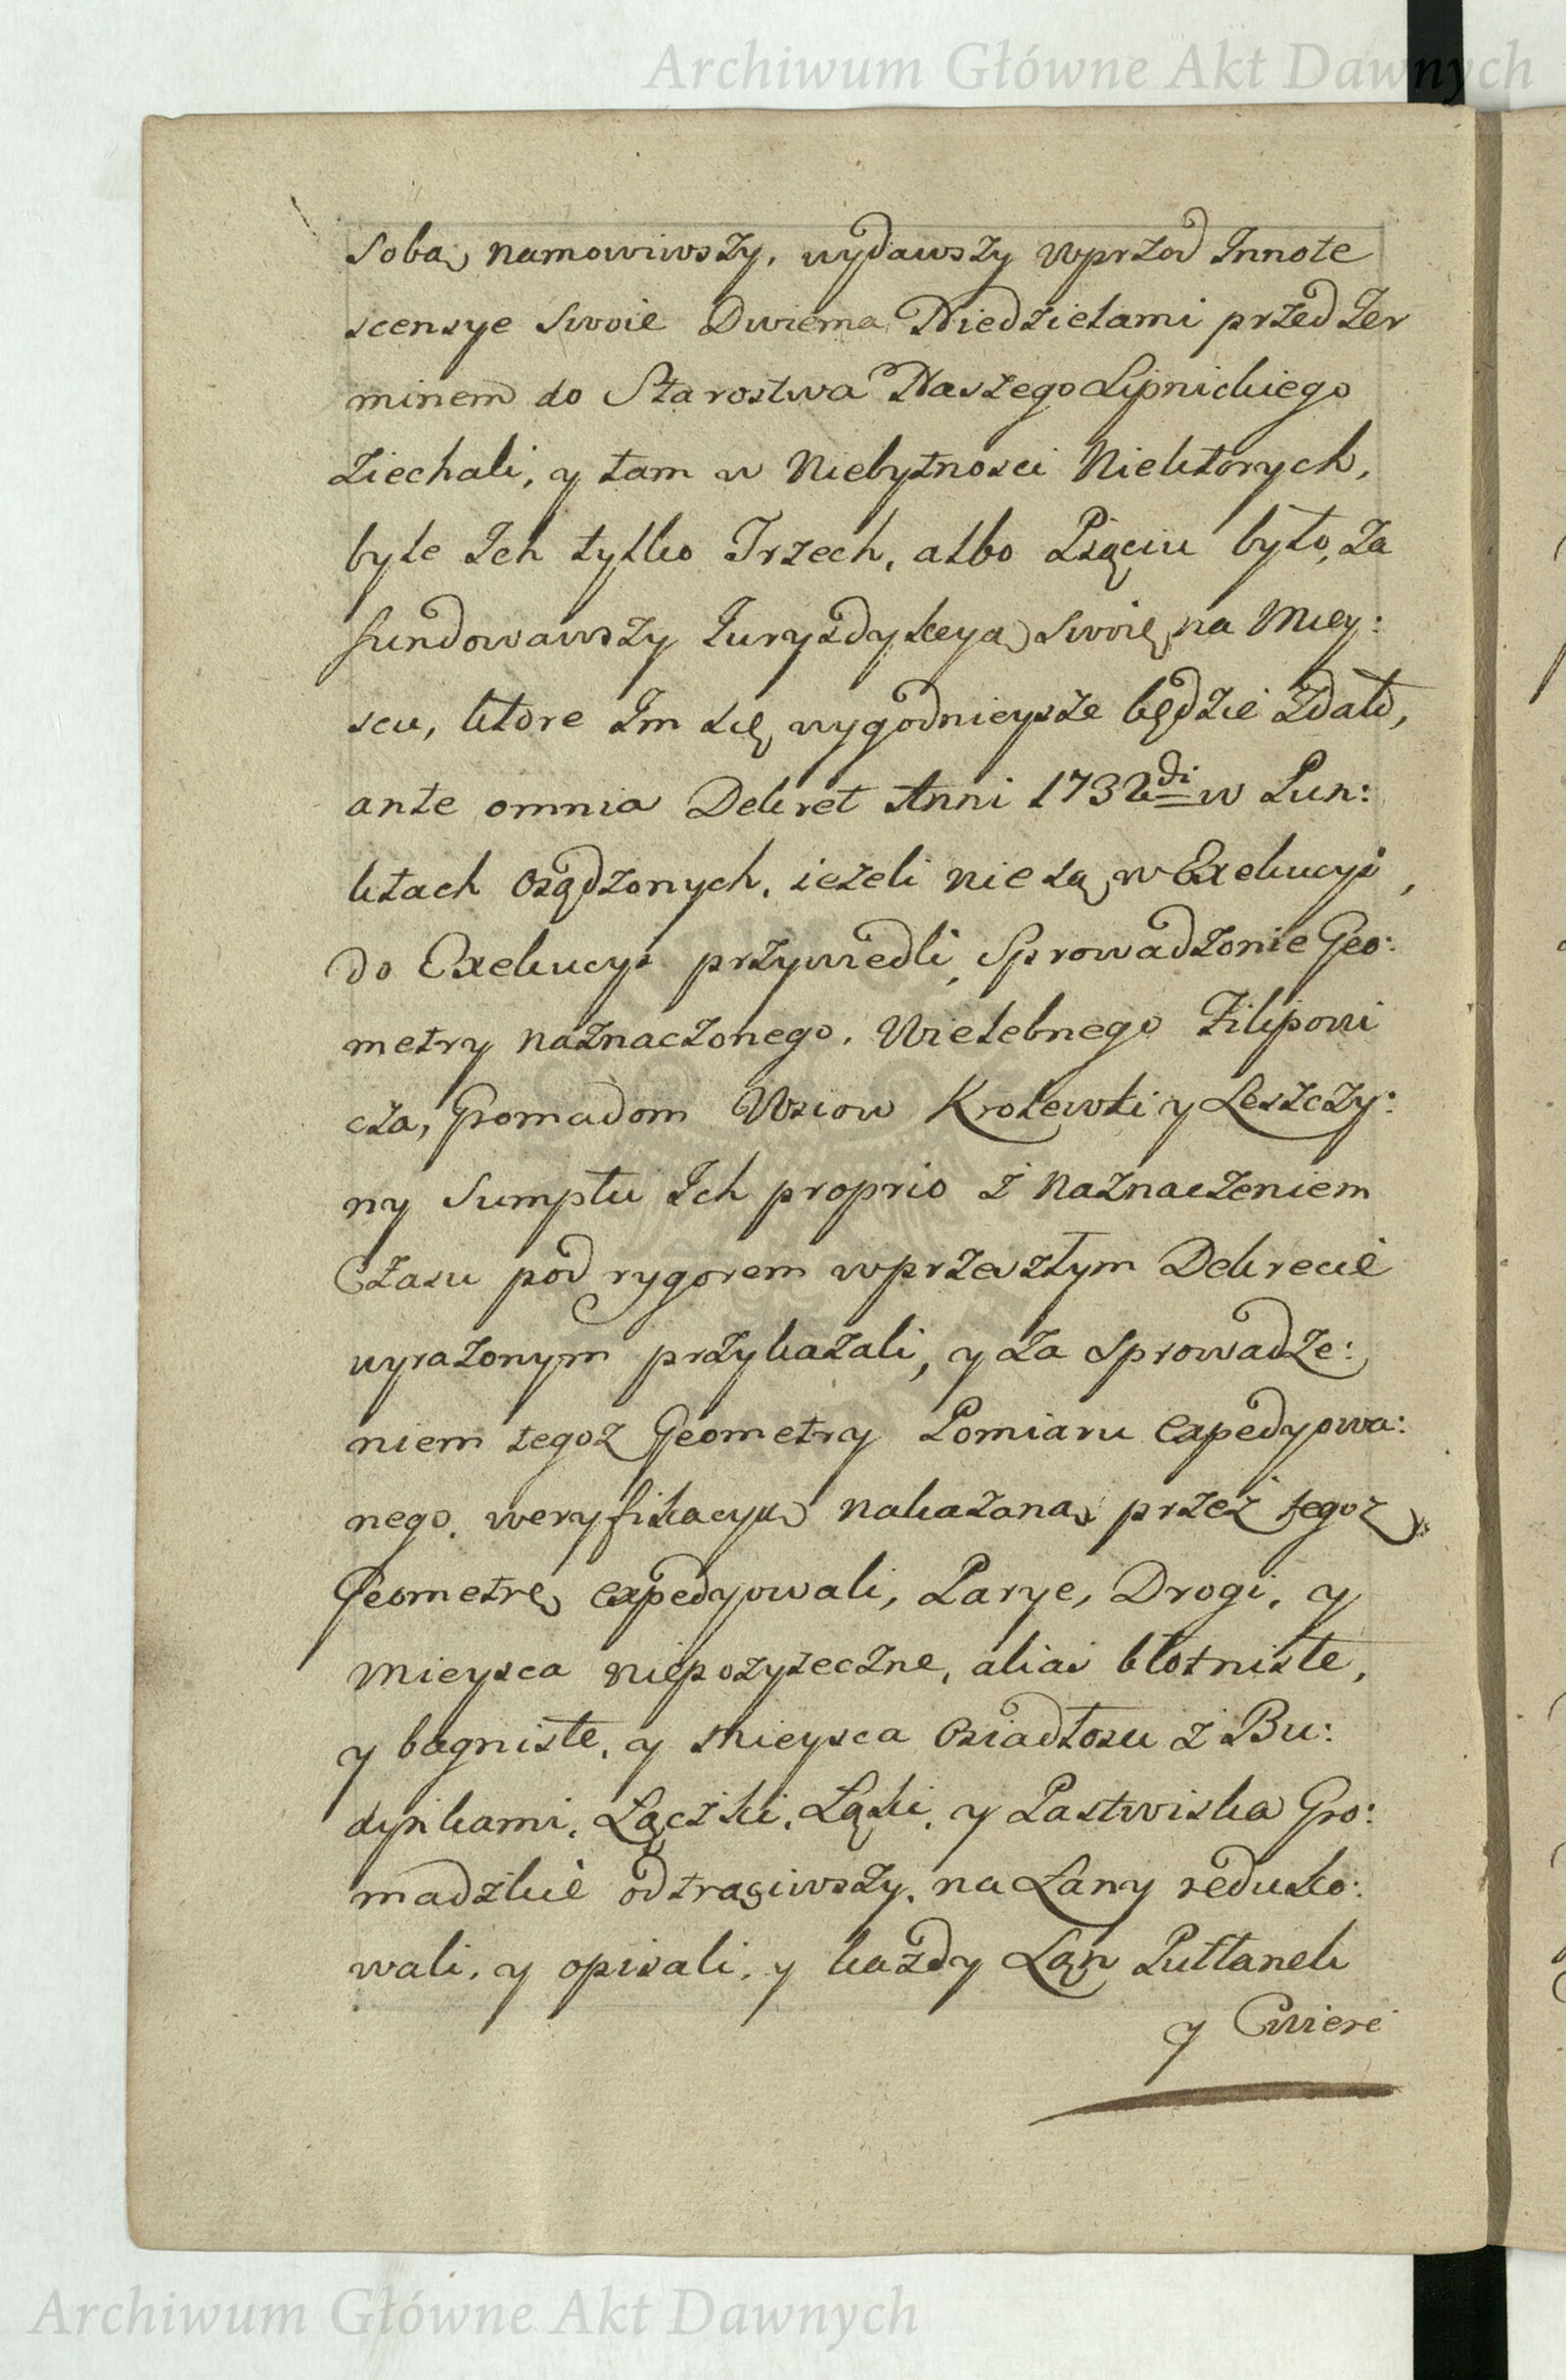 Archiwum Główne Akt Dawnych
sobą namowiwszy, wydawszy wprzod Innote
scensye swoie Dwiema Niedzielami przed Ter
minem do Starostwa Naszego Lipnickiego
Ziechali, y tam w Niebytnosci Niektorych,
byle Ich tylko Trzech, albo Pięciu było, Za
fundowawszy Iuryzdykcyą swoię na Miey:
scu, ktore Im się wygodnieysze będzie Zdało,
ante omnia Dekret Anni 1732di w Pun:
ktach osądzonych, ieżeli nie są w Exekucyi,
do Exekucyi przywiedli, Sprowadzenie Geo:
metry naznaczonego, Wielebnego Filipowi
cza, Gromadom Wsiow Krolewki y Leszczy:
ny Sumptu Ich proprio z naznaczeniem
Czasu pod rygorem w przeszłym Dekrecie
wyrażonym przykazali, y za sprowadze:
niem tegoż Geometry Pomiaru expedyowa:
nego, weryfikacyą nakazaną przez tegoż
Geometrę expedyowali, Parye, Drogi, y
mieysca niepożyteczne, alias błotniste,
y bagniste, y mieysca osiadłosci z Bu:
dynkami, Łączki, Łąki, y Pastwiska Gro:
madzkie odtrąciwszy, na Łany reduko:
wali, y opisali, y każdy Łan Pułłanek
y Cwierć
Archiwum Główne Akt Dawnych